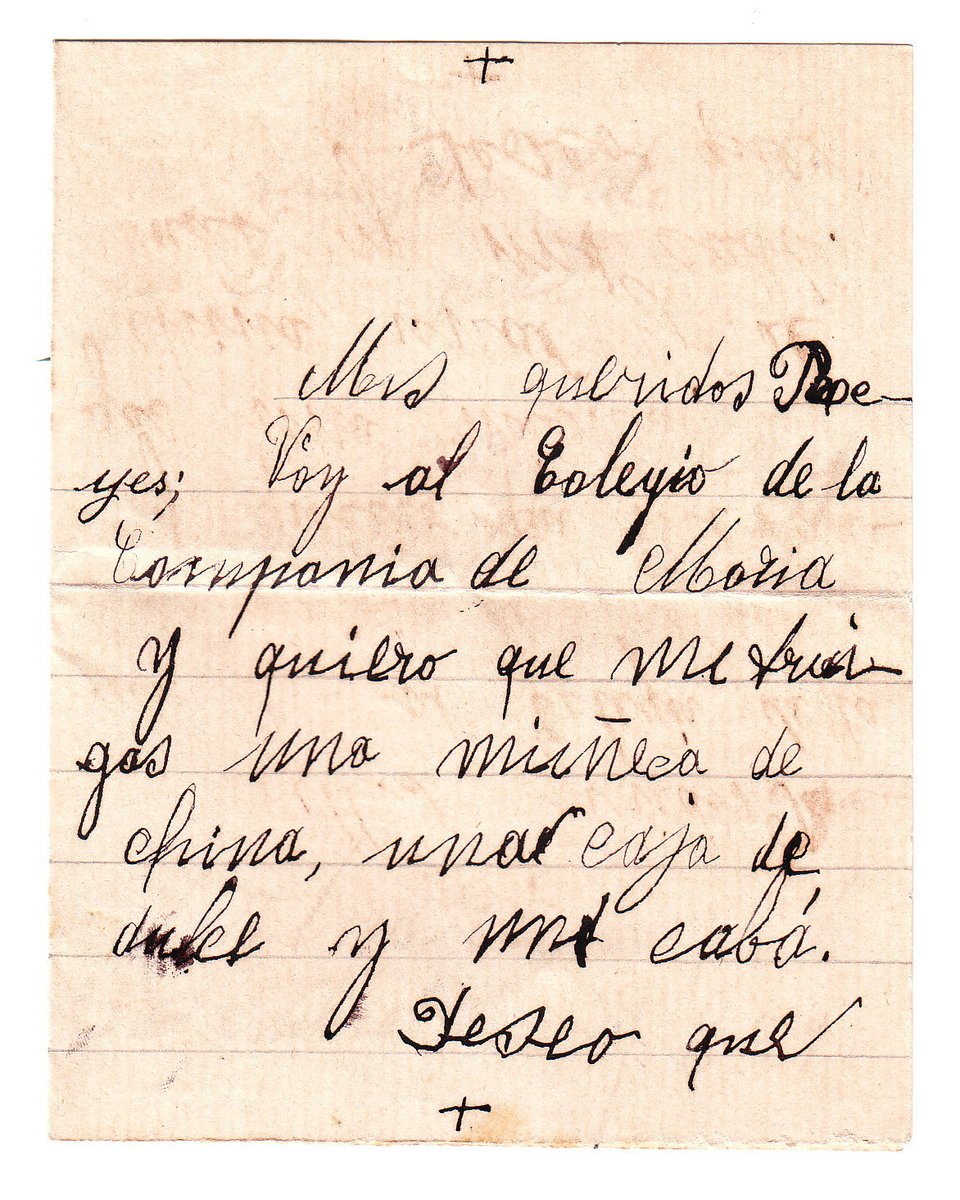 +
Mis queridos Re-
yes; Voy al Colegio de la
Compania de Maria
y quiero que me trai-
gas una muñeca de
china, una caja de
dulce y una cabá.
Deseo que
+